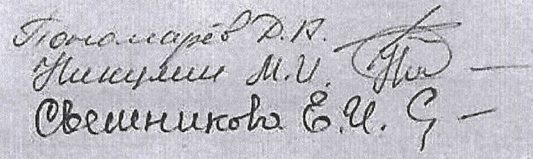 Пономарёв Д.А.
Никулин М.И. –
Свешникова Е.И. –